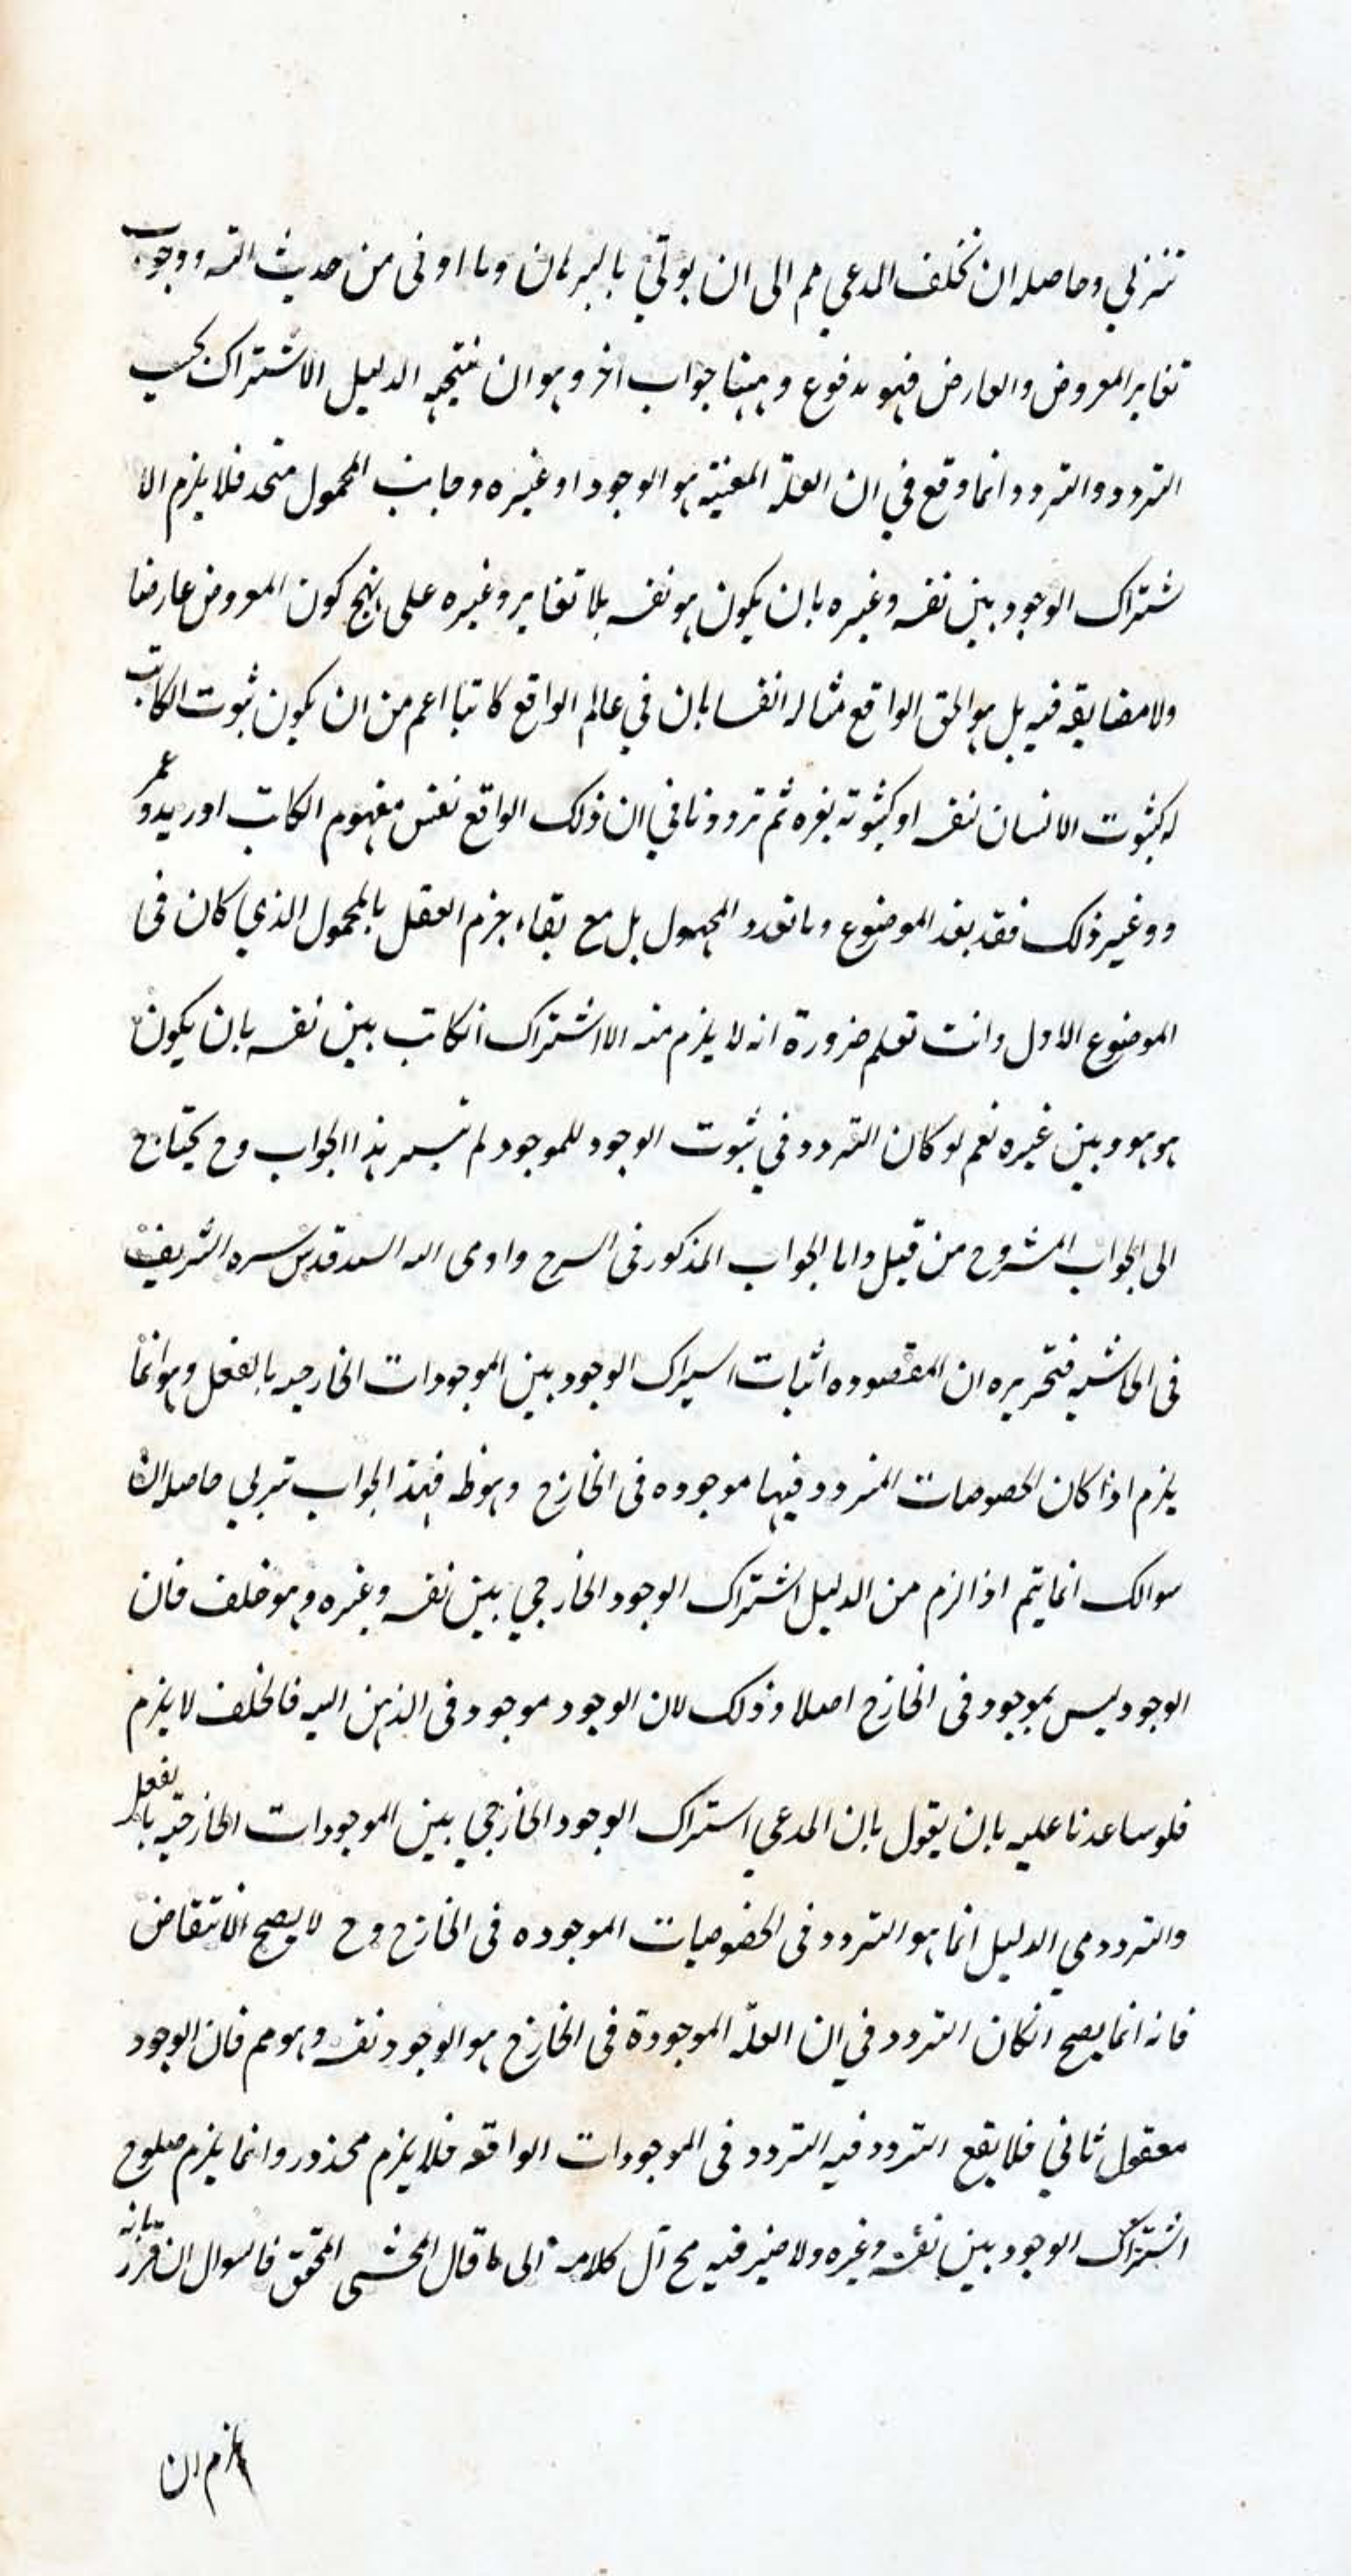 تنزلي وحاصله ان تخلف المدعي مم الى ان يوتي بالبرهان وما اوفى من حديث ووجوب
تغاير المعروض والعارض فهو مدفوع وههنا جواب اخر وهو ان نتيجه الدليل الاشتراك بحسب
التردد والتردد انما وقع في ان العلة المعنيه هو الوجود او غيره وجانب المحمول متحد فلا يلزم الا
شتراك الوجود بين نفسه وغيره بان يكون هو نفسه بلا تغاير وغيره على نهج كون المعروض عارضا
ولا مضايقه فيه بل هو الحق الواقع مثاله ان في عالم الواقع كاتبا اعم من ان يكون ثبوت الكاتب
له كثبوت الانسان لنفسه او كثبوته لغيره ثم ترددنا في ان ذلك الواقع نفس مفهوم الكاتب او زيد او عمر
و وغير ذلك فقد الموضوع وما تعدد المحمول بل مع بقاء جزم العقل بالمحمول الذي كان في
الموضوع الاول وانت تعلم ضرورة انه لا يلزم منه الا اشتراك الكاتب بين نفسه بان يكون
هو هو وبين غيره نعم لو كان التردد في ثبوت الوجود للموجود لم يتيسر هذا الجواب وح يحتاج
الى الجواب المشروح من قبل واما الجواب المذكور في الشرح واومى اليه السيد قدس سره الشريف
في الحاشيه فتحريره ان المقصود اثبات اشتراك الوجود بين الموجودات الخارجيه بالفعل وهو انما
يلزم اذا كان الخصوصات المتردد فيها موجوده في الخارج وهو ظ فهذا الجواب تنزلي حاصله ان
سوالك انما يتم اذا لزم من الدليل اشتراك الوجود الخارجي بين نفسه وغيره وهو خلف فان
الوجود ليس بموجود في الخارج اصلا وذلك لان الوجود موجود في الذهن البته فالخلف لا يلزم
فلو ساعدنا عليه بان يقول بان المدعي اشتراك الوجود الخارجي بين الموجودات الخارجيه بالفعل
والتردد في الدليل انما هو التردد في الخصوصيات الموجوده في الخارج وح لا يصح الانتقاض
فانه انما يصح انكان التردد في ان العلة الموجودة في الخارج هو الوجود نفسه وهو مم فان الوجود
معقول ثاني فلا يقع التردد فيه التردد في الموجودات الواقعه فلا يلزم محذور وانما يلزم صلوح
اشتراك الوجود بين نفسه وغيره ولا ضير فيه مح آل كلامه الى ما قال المحشى المحقق فالسوال ان قرر بانه
يلزم ان